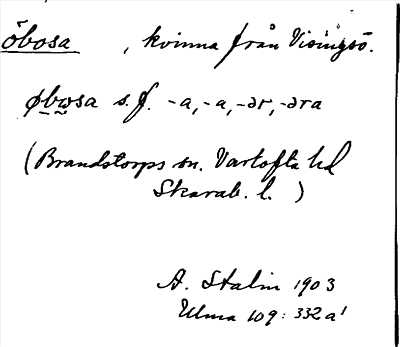 öbosa , kvinna från Visingsö.
øbωsa s. f. -a, -a, -ər, -əra
(Brandstorps sn. Vartofta hd
Skarab. l. )
A. Stalin 1903
Ulma 109: 332 a¹